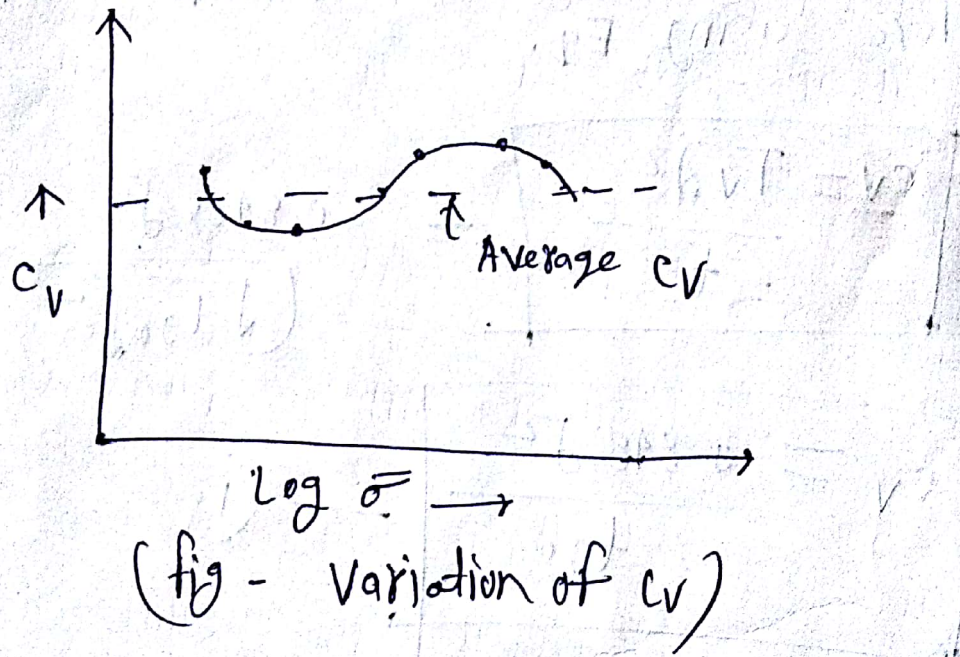 ↑
Cv
Average Cv
Log σ̄ →
(fig - Variation of Cv)